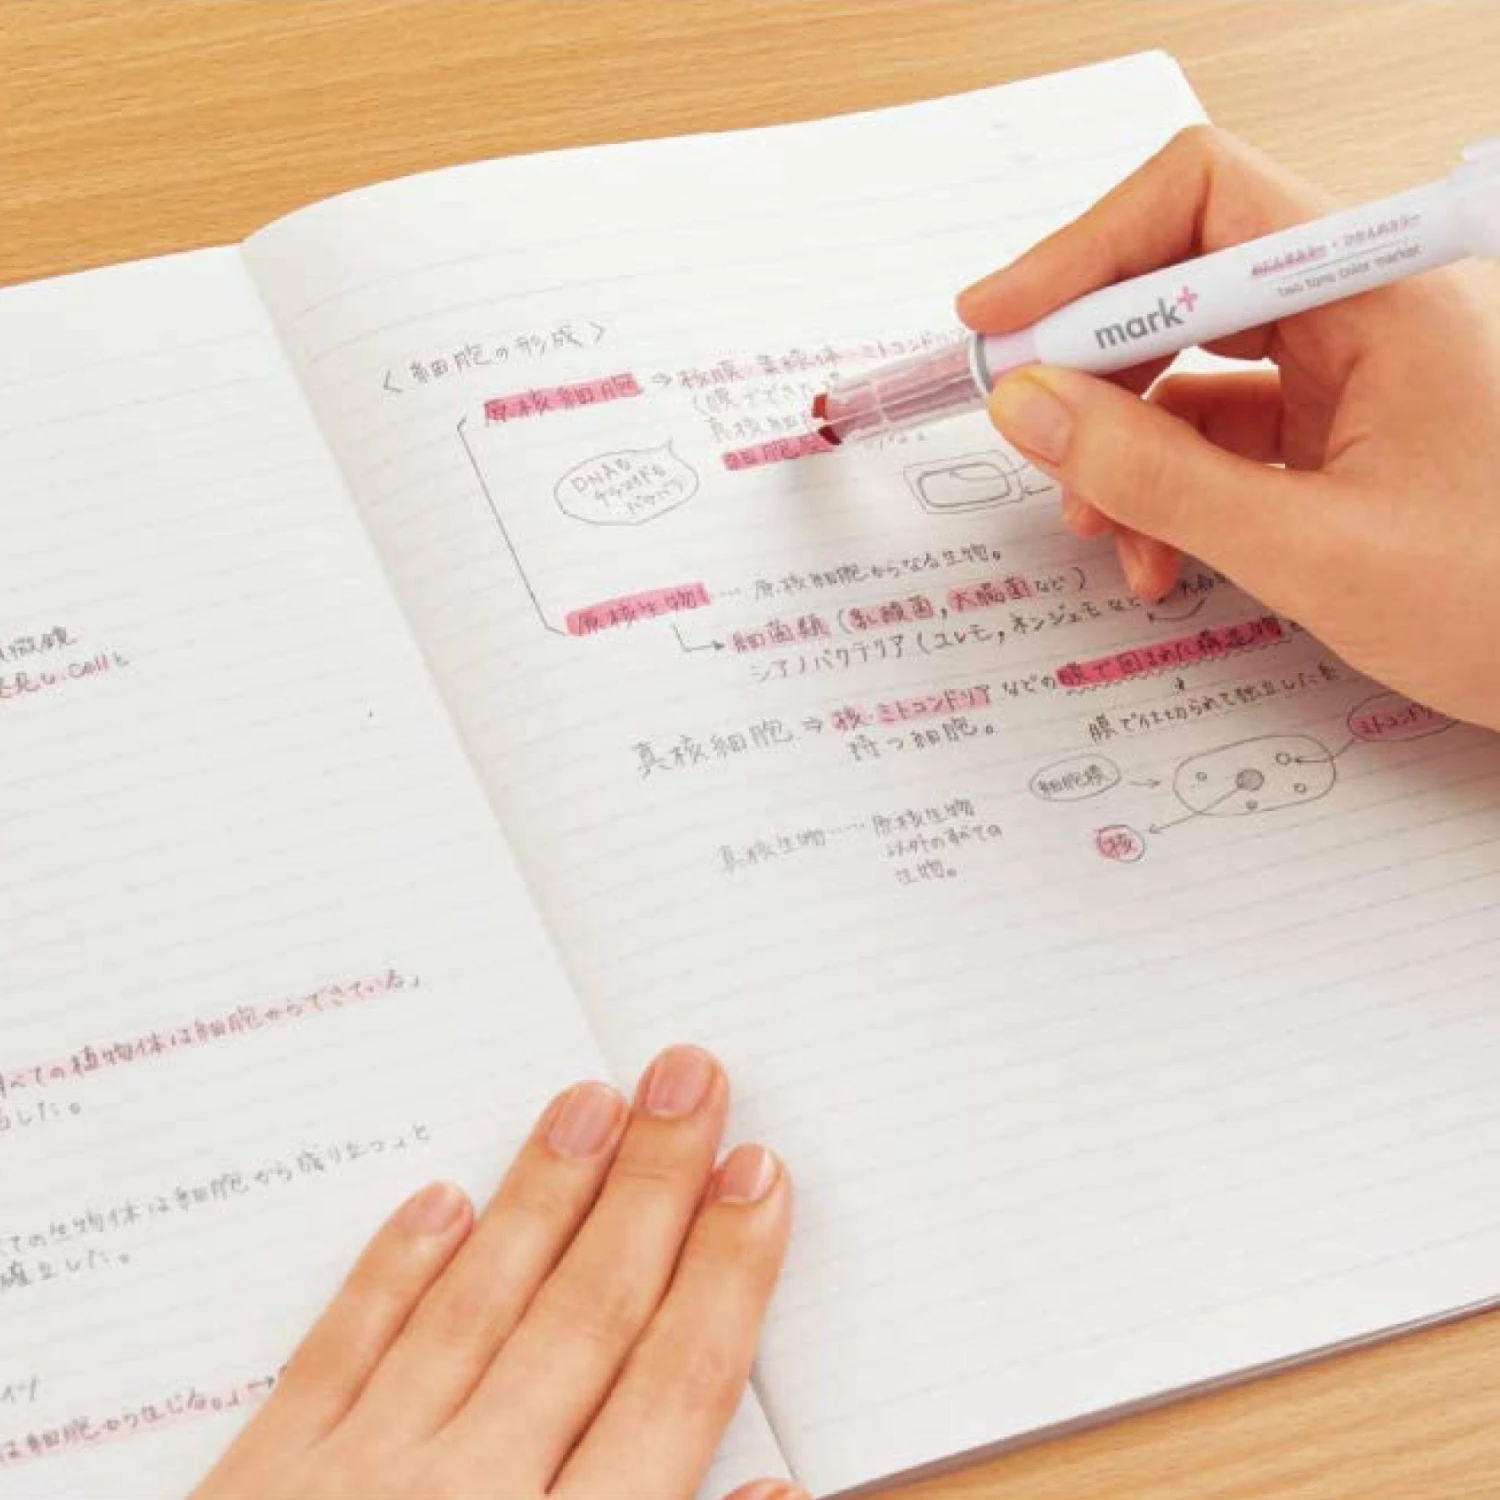 微鏡
見し Cellと
べての植物体は細胞からできている」
した。
ての生物体は細胞から成り立つ」と
確立した。
は細胞から生じる。」→
〈細胞の形成〉
原核細胞 ⇒ 核膜・葉緑体・ミトコンドリ
(膜でできた
真核細
細胞
DNAも
原核生物 …… 原核細胞からなる生物。
細菌類 (乳酸菌, 大腸菌など)
シアノバクテリア (ユレモ, ネンジュモなど
真核細胞 ⇒ 核・ミトコンドリア などの膜で囲まれた構造物
持つ細胞。
膜で仕切られて独立した
細胞膜
ミトコンドリ
核
真核生物 …… 原核生物
以外のすべての
生物。
mark+
two tone color marker